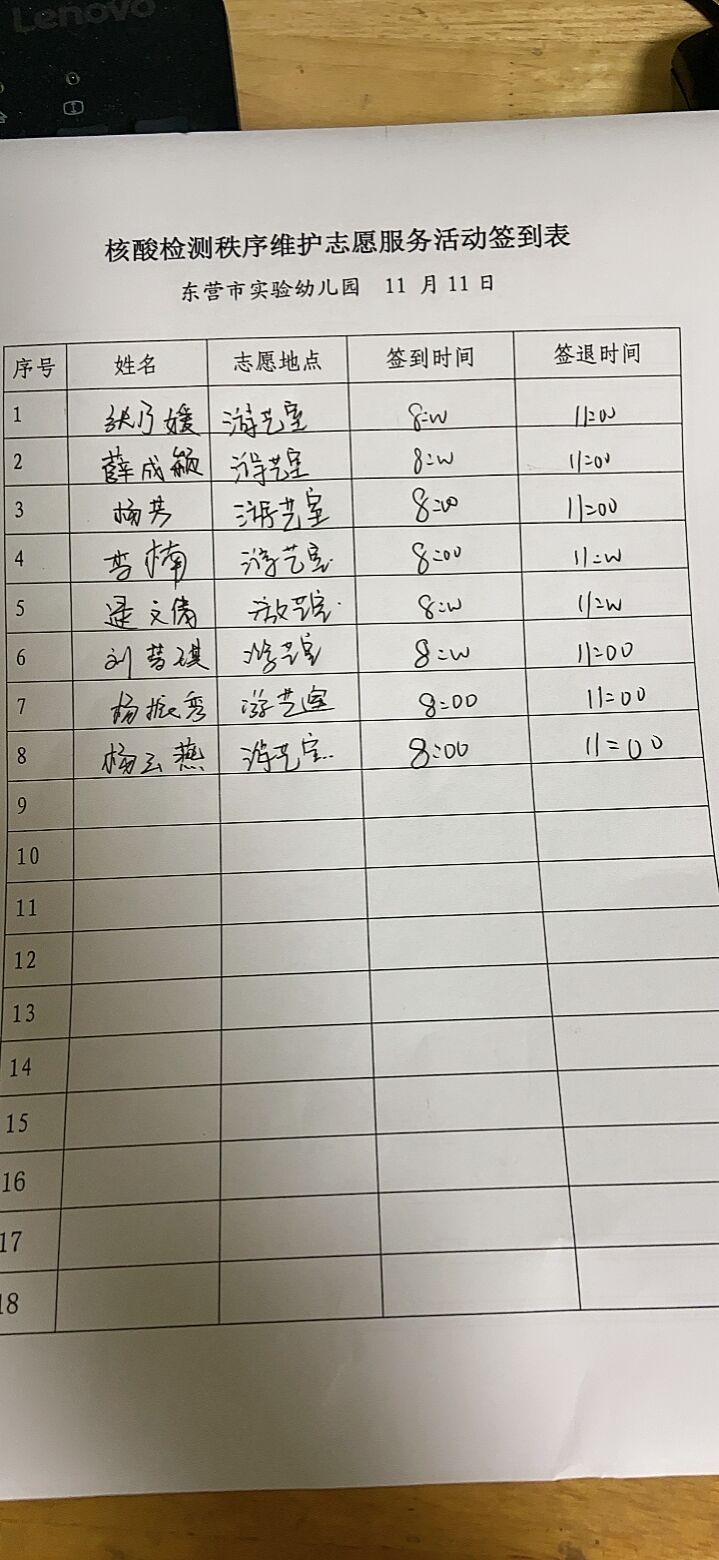 Lenovo
核酸检测秩序维护志愿服务活动签到表
东营市实验幼儿园 11 月 11 日
序号 姓名 志愿地点 签到时间 签退时间
1 张乃媛 游艺室 8:00 11:00
2 薛成颖 游艺室 8:00 11:00
3 杨芳 游艺室 8:00 11:00
4 李楠 游艺室 8:00 11:00
5 文倩 游艺室 8:00 11:00
6 刘梦琪 游艺室 8:00 11:00
7 杨振秀 游艺室 8:00 11:00
8 杨云燕 游艺室 8:00 11:00
9
10
11
12
13
14
15
16
17
18